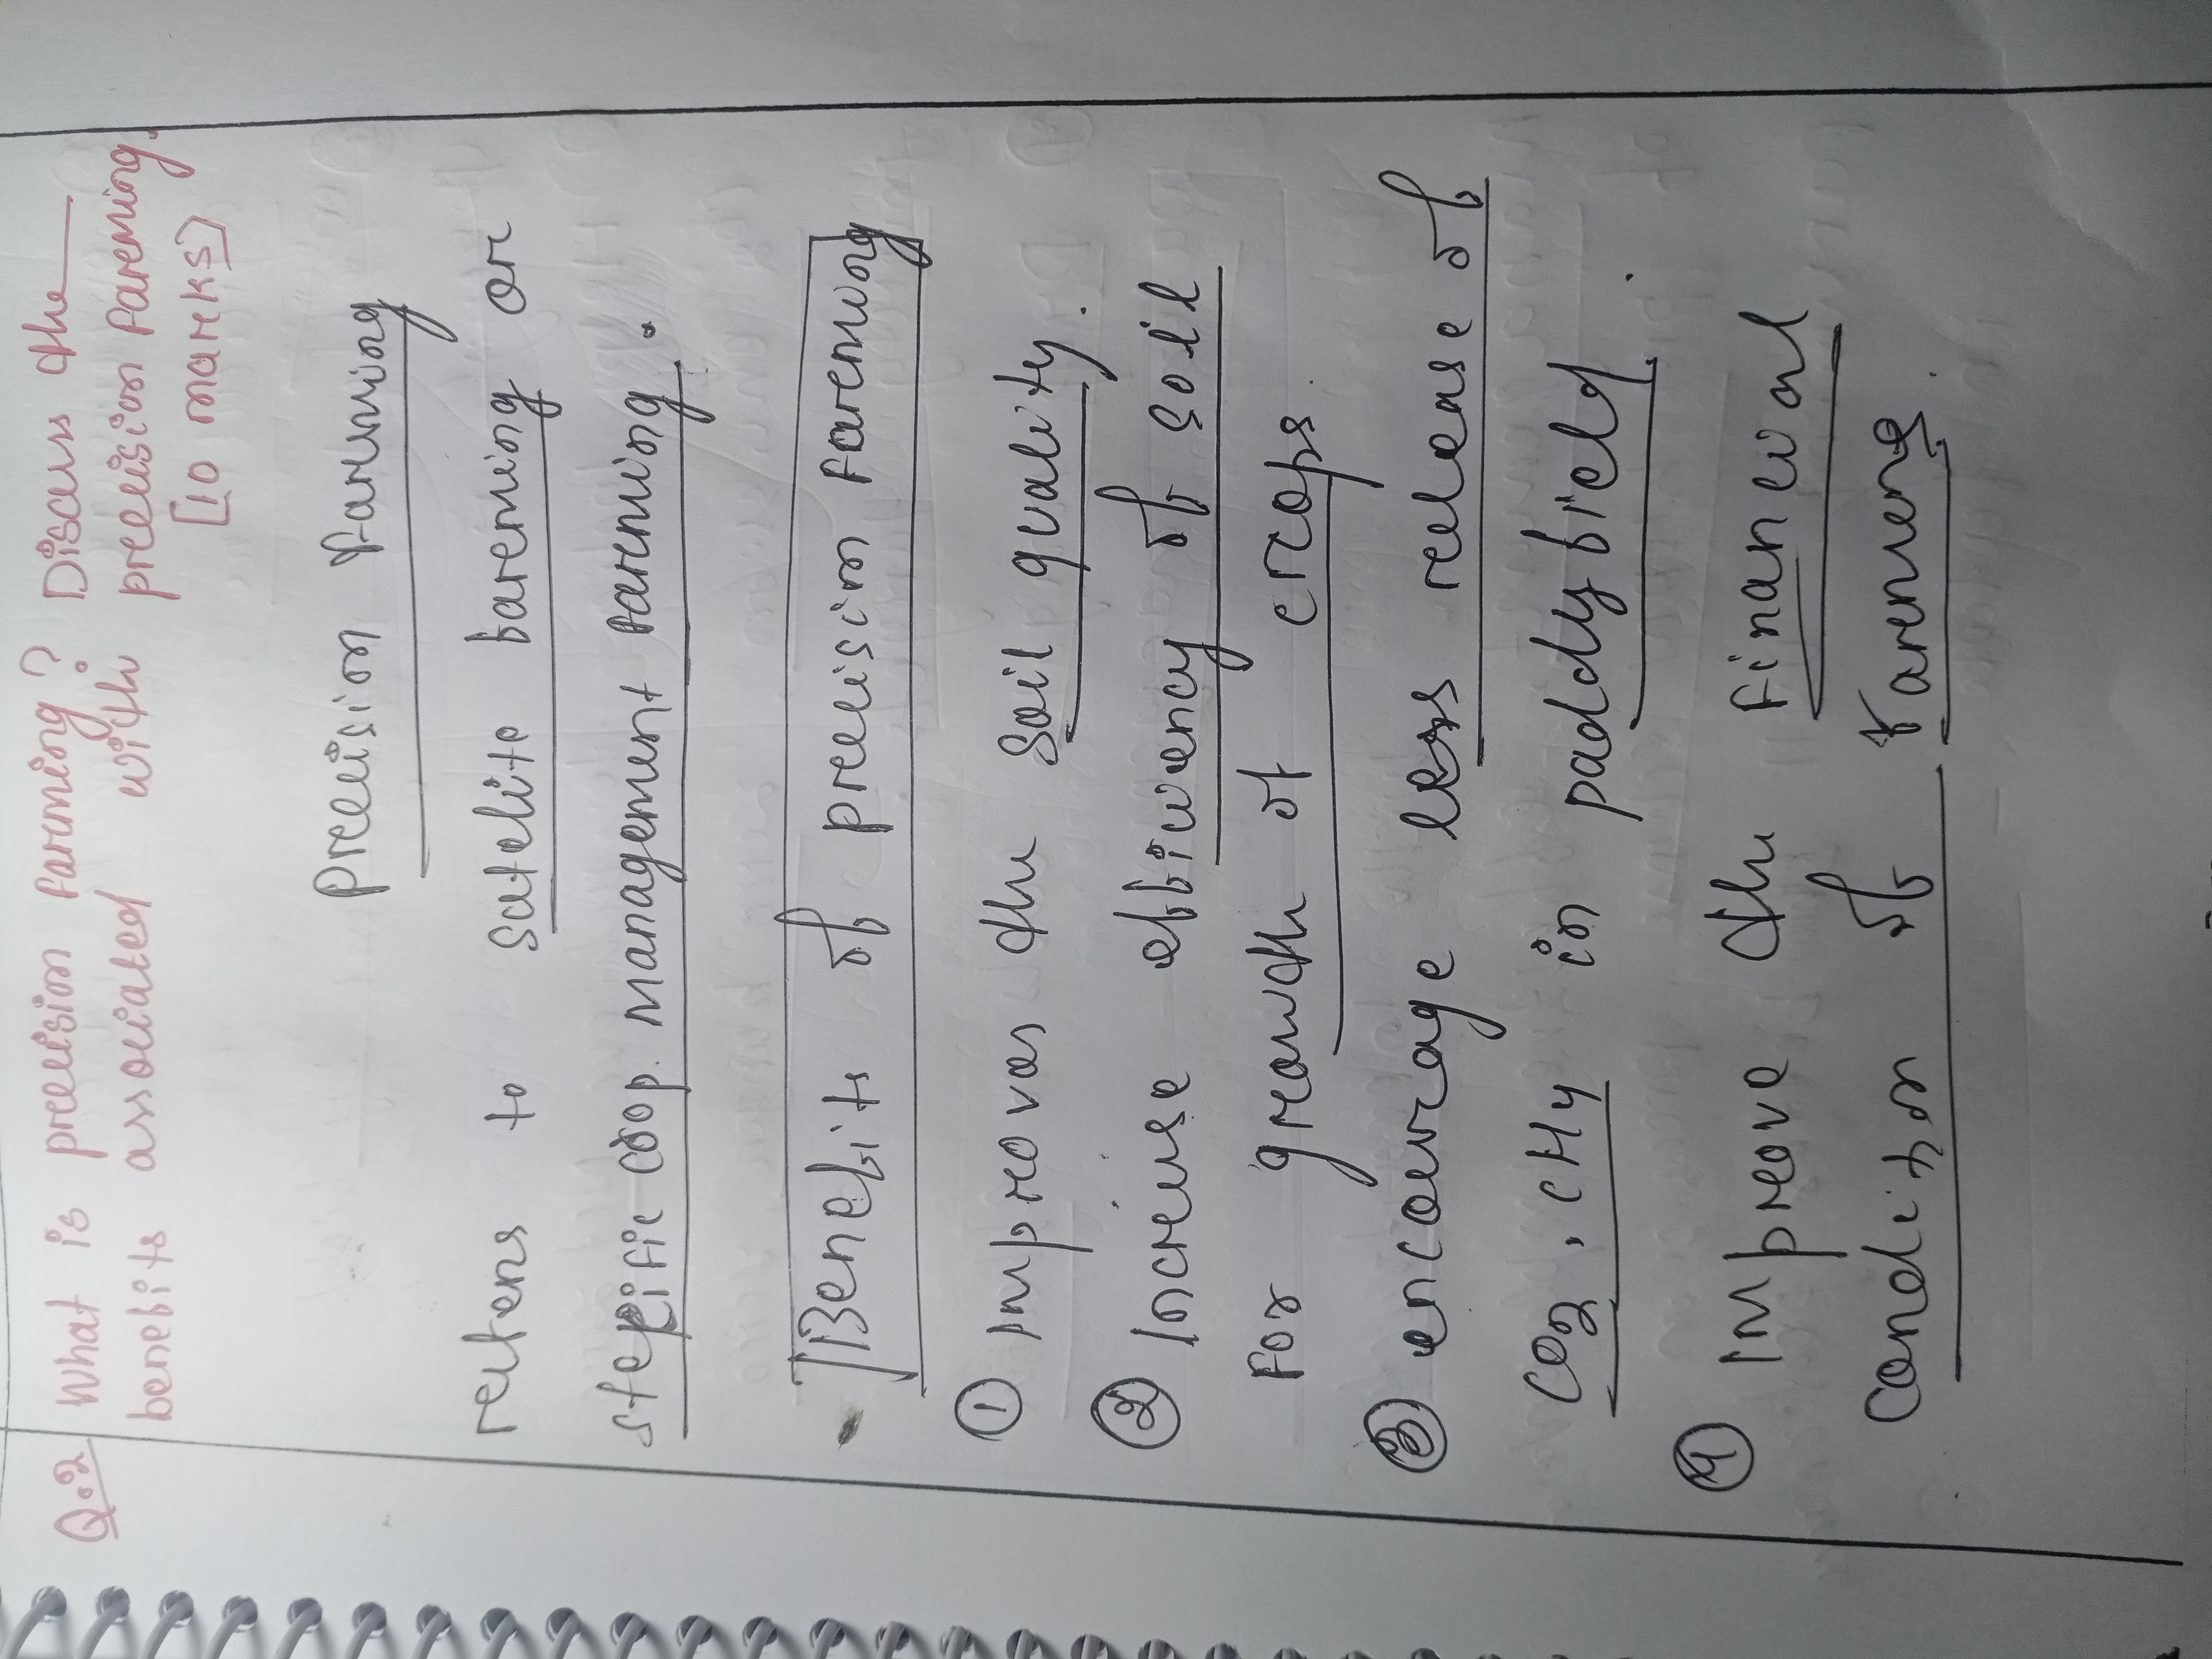 Q.2 What is precision farming? Discuss the
benefits associated with precision farming.
[10 marks]
Precision farming
refers to satelite farming or
stepific coop. management farming.
Benefits of precision farming
① Improves the soil quality.
② Increase efficiency of soil
for growth of crops.
③ encourage less release of
CO2, CH4 in paddy field.
④ Improve the financial
condition of farmers.